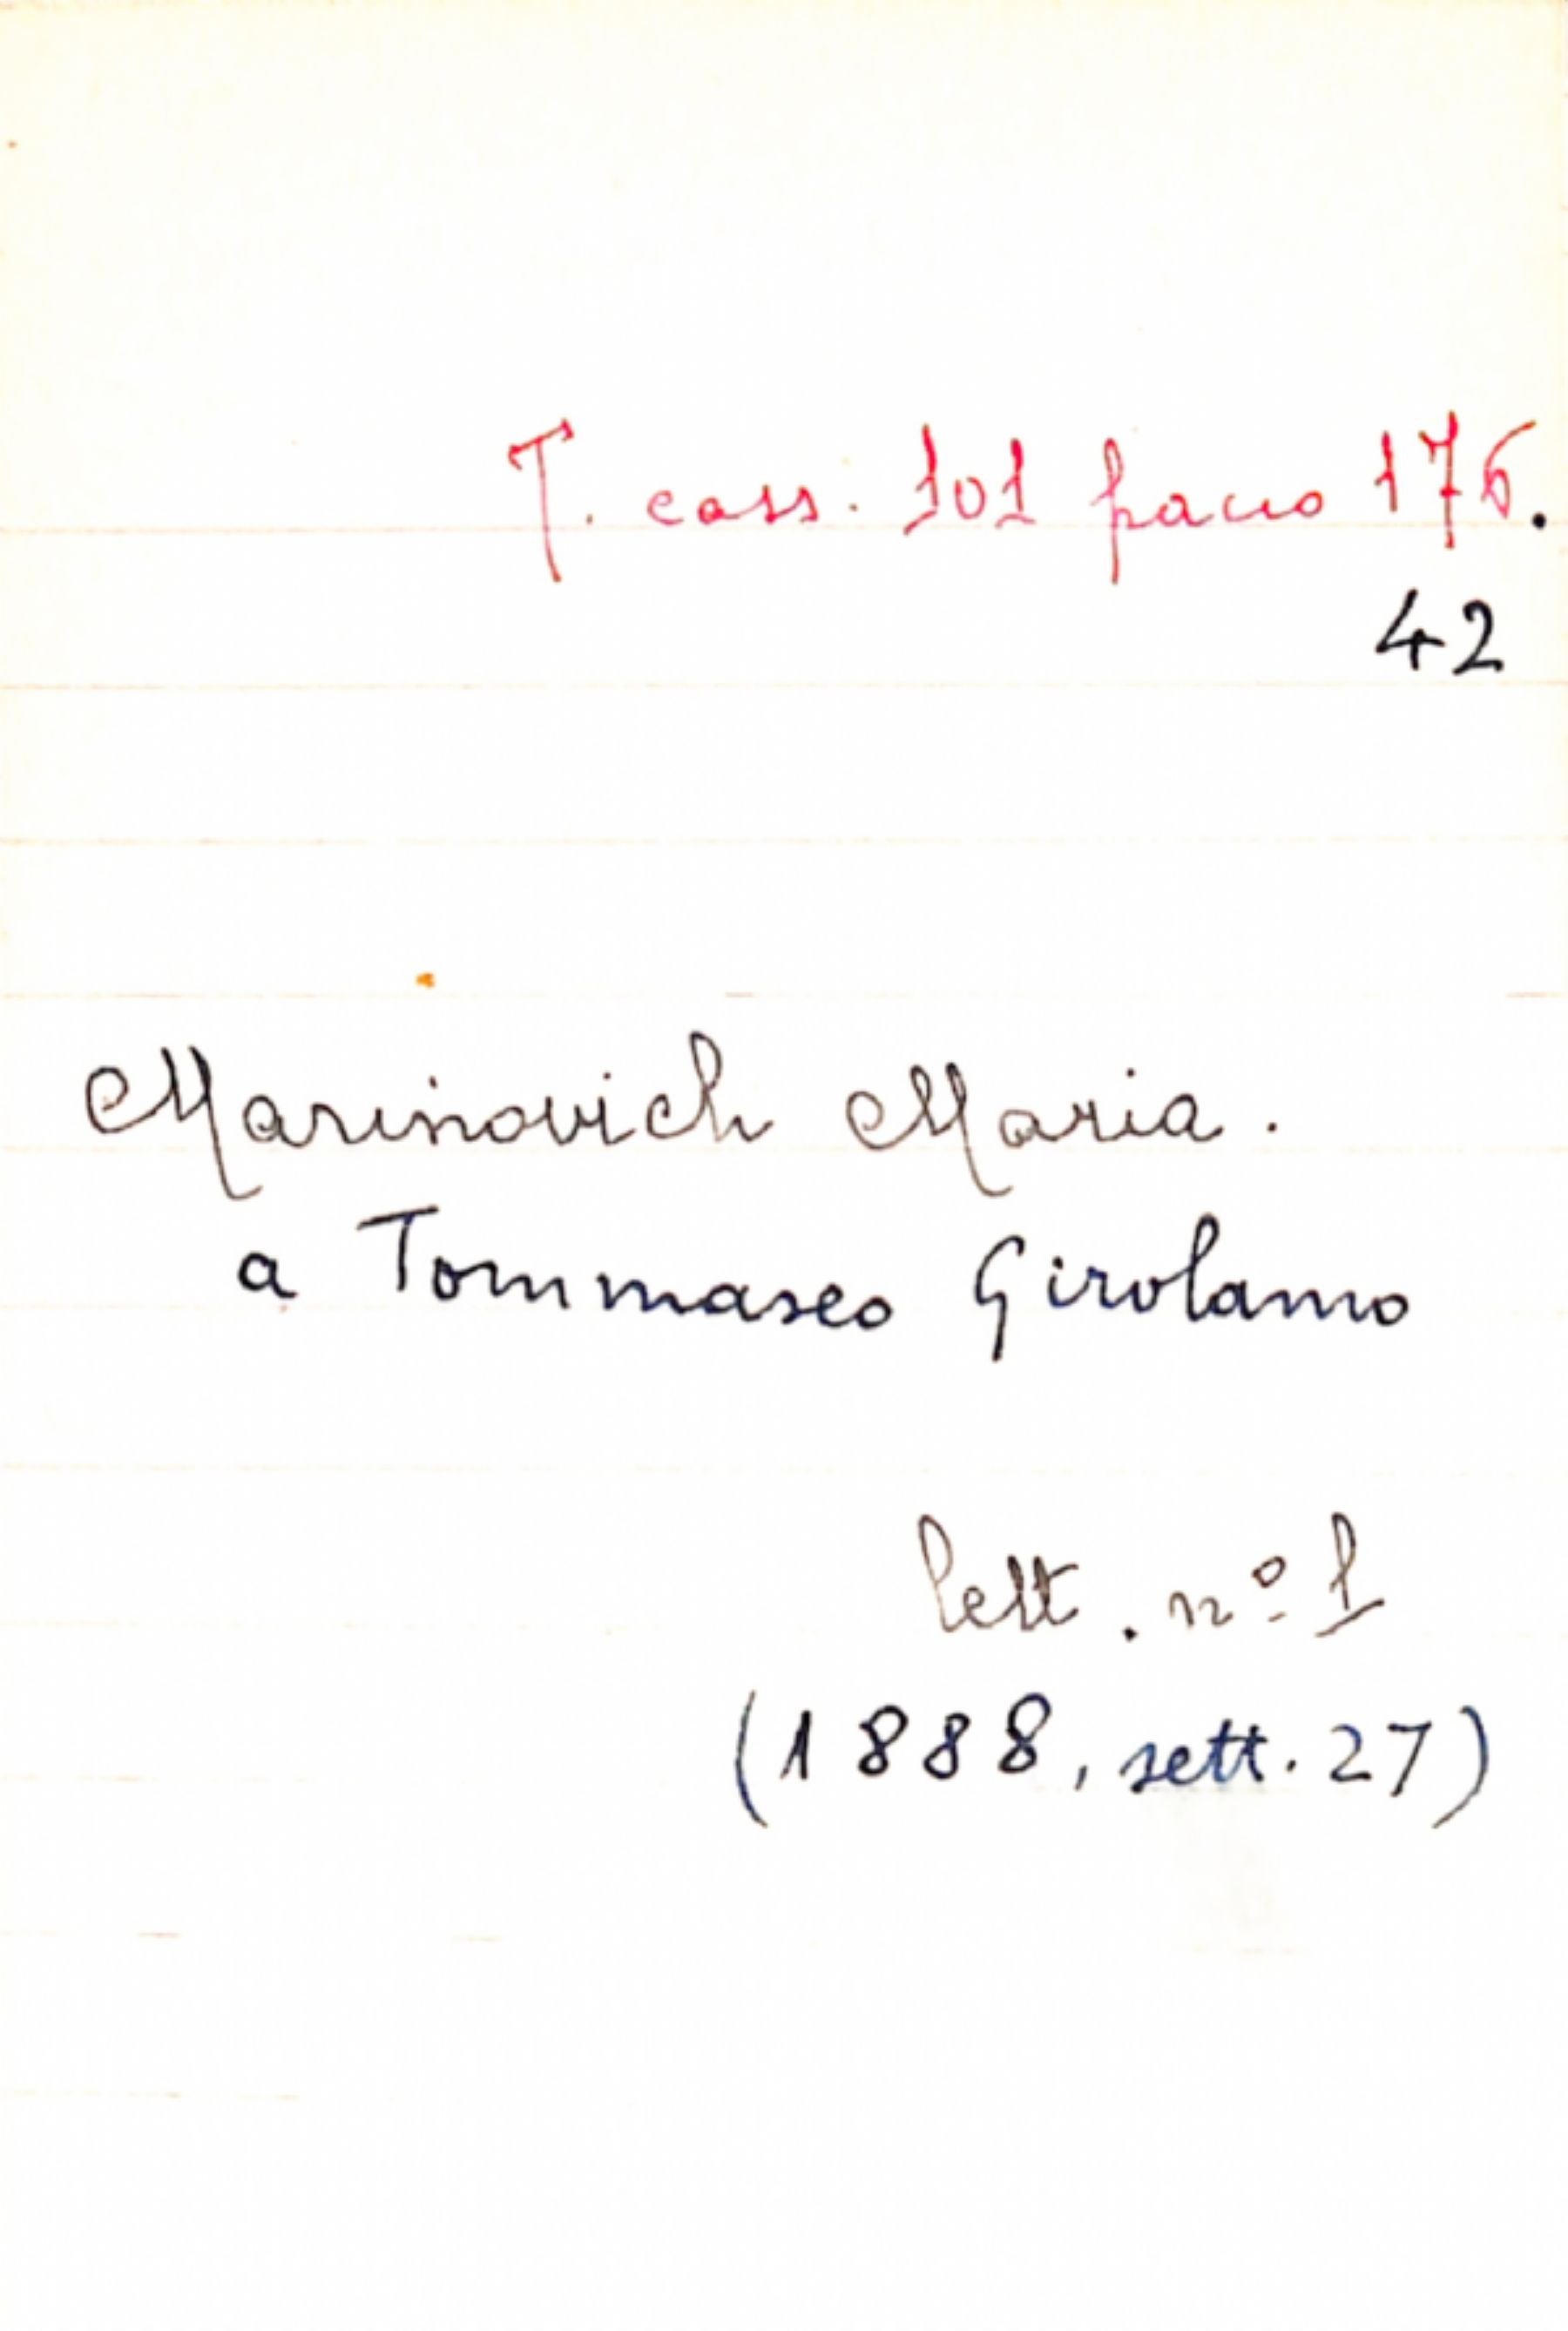 T. cass. 101 pacco 176.
42
Marinovich Maria.
a Tommaseo Girolamo
lett. nº 1
(1888, sett. 27)